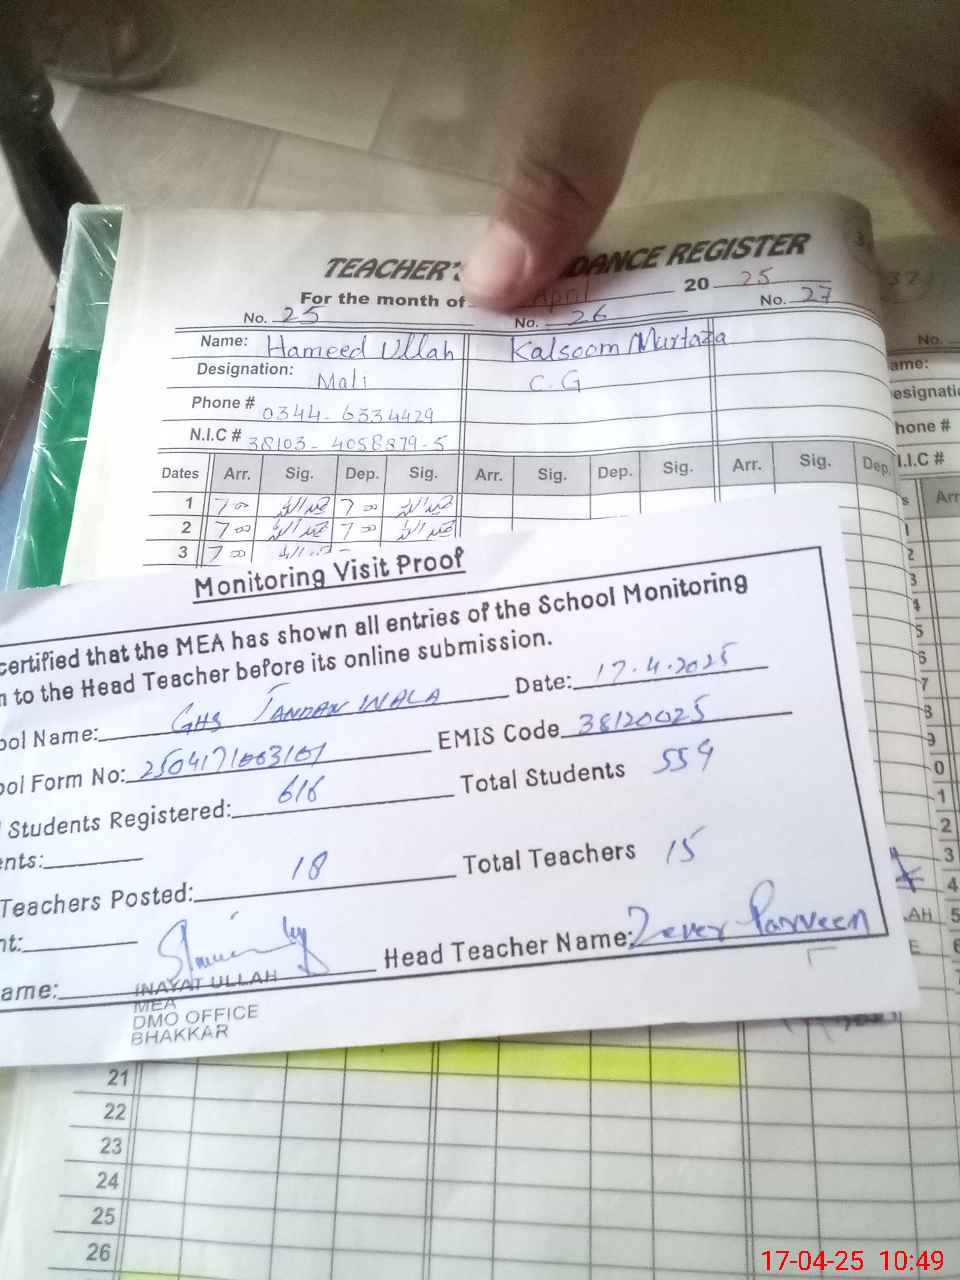 TEACHER'S DANCE REGISTER
For the month of April 2025
No. 25 No. 26 No. 27
Name: Hameed Ullah Kalsoom Murtaza
Designation: Mali C.G
Phone # 0344-6334429
N.I.C # 38103-4058879-5
Dates Arr. Sig. Dep. Sig. Arr. Sig. Dep. Sig. Arr. Sig. Dep.
1 7 00 7 00
2 7 00 7 00
3 7 00
Monitoring Visit Proof
certified that the MEA has shown all entries of the School Monitoring
to the Head Teacher before its online submission.
ool Name: GHS JANDAN WALA Date: 17.4.2025
ool Form No: 2504171003101 EMIS Code 38120025
Students Registered: 616 Total Students 554
ents:
Teachers Posted: 18 Total Teachers 15
nt:
ame: Head Teacher Name: Zever Parveen
INAYAT ULLAH
MEA
DMO OFFICE
BHAKKAR
21
22
23
24
25
26
No.
ame:
esignati
hone #
I.I.C #
Arr
17-04-25 10:49